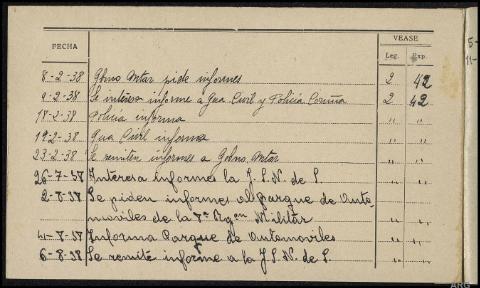 VEASE
FECHA
Leg. Exp.
8-2-38 Gbno Mtar pide informes 2 42
9-2-38 Se interesa informe a Gua Civil y Policia Coruña 2 42
18-2-38 Policia informa " "
19-2-38 Gua Civil informa " "
23-2-38 Se remiten informes a Gobno. Mtar " "
26-7-38 Interesa informes la J.S.N. de S. " "
2-8-38 Se piden informes al Parque de Auto-
moviles de la 7ª Rgon Militar " "
4-8-38 Informa Parque de Automoviles " "
6-8-38 Se remite informe a la J.S.N. de S. " "
5-
11-
ARG